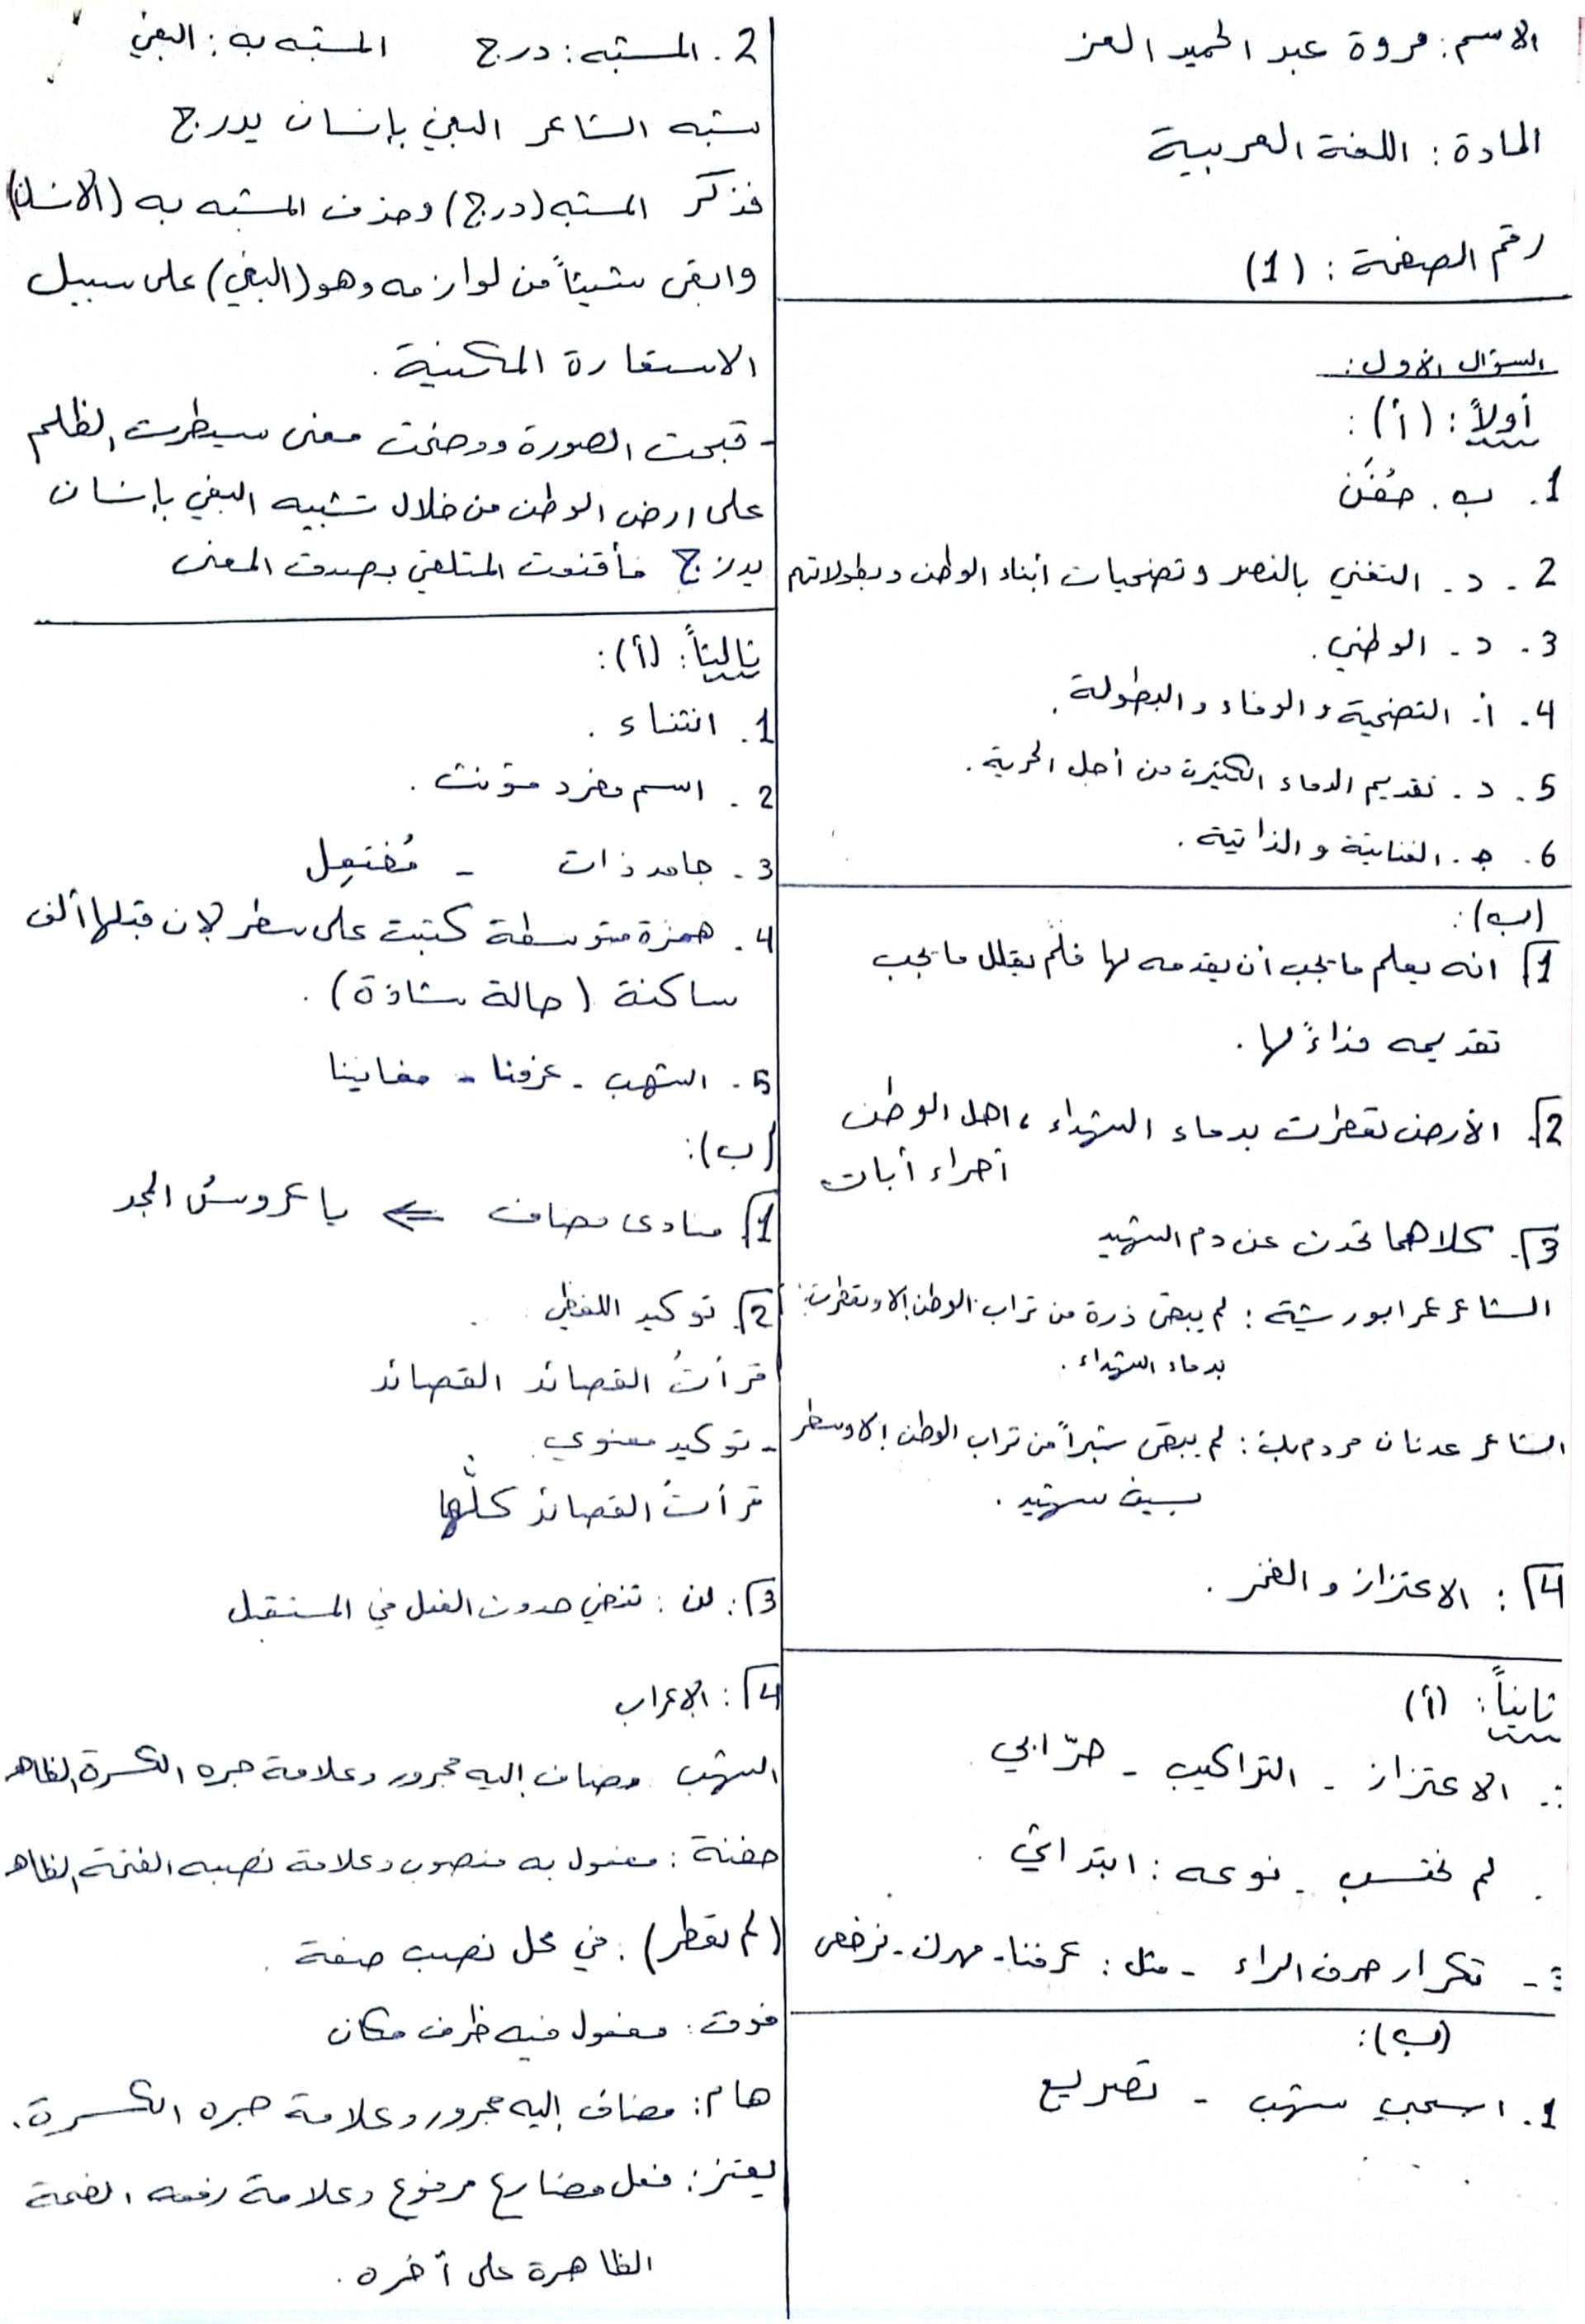 الاسم: مروة عبد الحميد العز
المادة: اللغة العربية
رقم الصفحة: (1)
السؤال الأول:
أولاً: (أ):
1. ب. حُفَن
2. د. التغني بالنصر وتضحيات أبناء الوطن وبطولاتهم
3. د. الوطني.
4. أ. التضحية والوفاء والبطولة.
5. د. تقديم الدماء الكثيرة من أجل الحرية.
6. ج. الغنائية والذاتية.
(ب):
1 انه يعلم ما يجب أن يقدمه لها فلم يقلل ما يجب
تقديمه فداءً لها.
2. الأرض تعطرت بدماء الشهداء، اهل الوطن
أحرار أبات
3. كلاهما تحدث عن دم الشهيد
الشاعر عمر ابو ريشة: لم يبقى ذرة من تراب الوطن إلا وتعطرت
بدماء الشهداء.
الشاعر عدنان مردم بك: لم يبقى شبراً من تراب الوطن إلا وسطر
بسيف شهيد.
4: الاعتزاز و الفخر.
ثانياً: (أ)
:- الاعتزاز - التراكيب - حرّ ابي
. لم تختسب - نوعه: ابتدائي.
:- تكرار حرف الراء - مثل: عرفنا - مهرك - نرخص
(ب):
1. اسحبي شهب - تصريع
2. المشبه: درج المشبه به: البغي
شبه الشاعر البغي بإنسان يدرج
فذكر المشبه (درج) وحذف المشبه به (الانسان)
وابقى شيئاً من لوازمه وهو (البغي) على سبيل
الاستعارة المكنية.
- قبحت الصورة ووضحت معنى سيطرت الظلم
على ارض الوطن من خلال تشبيه البغي بإنسان
يدرج فأقنعت المتلقي بصدق المعنى
ثالثاً: (أ):
1. انتشاء.
2. اسم مفرد مؤنث.
3. جامد ذات - مُفتعِل
4. همزة متوسطة كتبت على سطر لان قبلها ألف
ساكنة (حالة شاذة).
5. الشهب - عرفنا - مغانينا
(ب):
1 منادى مضاف ⇐ يا عروسُ المجد
2. توكيد اللفظي
قرأتُ القصائد القصائد
- توكيد معنوي
قرأت القصائد كلَّها
3: لن: تنفي حدوث الفعل في المستقبل
4: الإعراب
الشهب مضاف إليه مجرور وعلامة جره الكسرة الظاهر
حفنة: مفعول به منصوب وعلامة نصبه الفتحة الظاهر
(لم تعطر): في محل نصب صفة
فوق: مفعول فيه ظرف مكان
هام: مضاف إليه مجرور وعلامة جره الكسرة.
يعتز: فعل مضارع مرفوع وعلامة رفعه الضمة
الظاهرة على آخره.